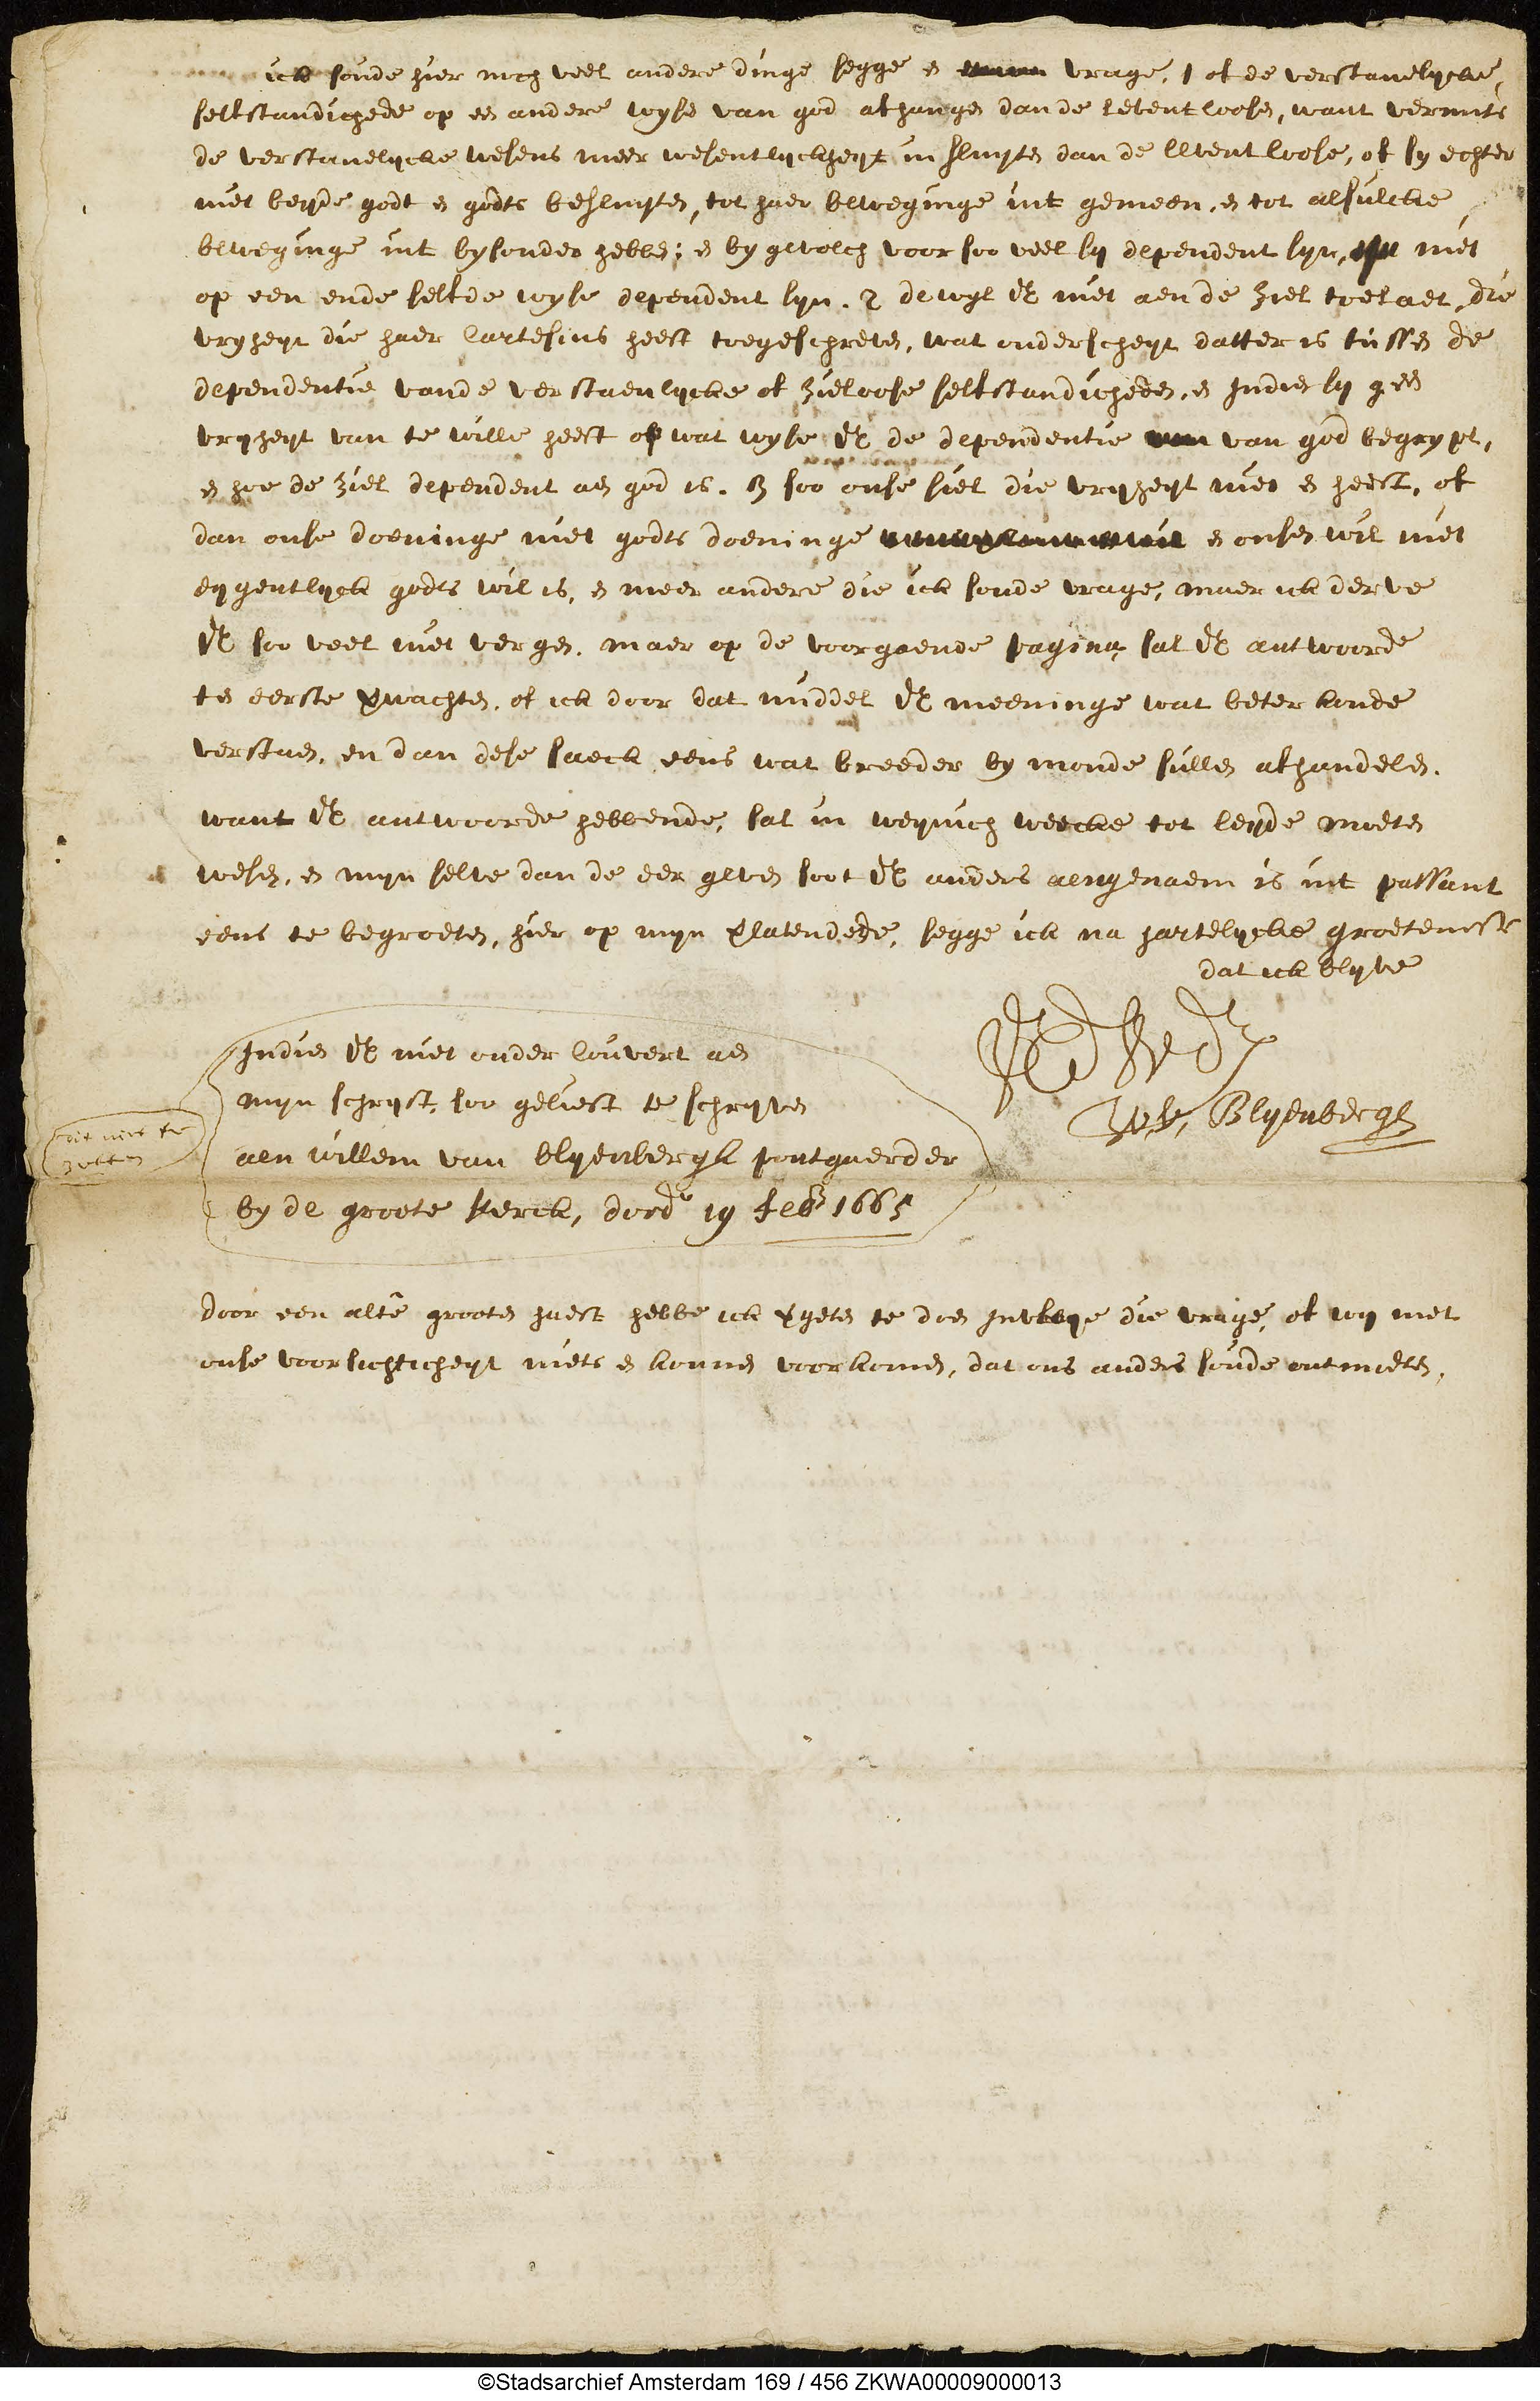 ick soude hier noch veel andere dinge segge en vrage, 1 of de verstanelycke,
selfstandichede op een andere wyse van god afhangen dan de levent loosen, want vermits
de verstanelycke wesens meer wesentlyckheyt in sluyten dan de levent loose, of sy echter
niet beyde godt en godts besluyten, tot haer beweginge int gemeen, en tot alsulcke
beweginge int bysonder hebben; en by gevolch voor soo veel sy dependent syn, niet
op een ende selfde wyse dependent syn. 2 dewyl UE niet aen de ziel toelaet, die
vryheyt die haer Cartesius heeft toegeschreven, wat onderscheyt datter is tussen de
dependentie vande verstaenlycke of zieloose selfstandicheden, en Indien sy geen
vryheyt van te wille heeft op wat wyse UE de dependentie van god begrypt,
en hoe de ziel dependent aen god is. 3 soo onse siel die vryheyt niet en heeft, of
dan onse doeninge niet godts doeninge en onsen wil niet
eygentlyck godts wil is, en meer andere die ick soude vrage, maer ick derve
UE soo veel niet vergen. maer op de voorgaende pagina sal UE antwoorde
ten eerste verwachten, of ick door dat middel UE meeninge wat beter konde
verstaen, en dan dese saeck eens wat breeder by monde sullen afhandelen.
want UE antwoorde hebbende, sal in weynich weecke tot leyde moeten
wesen, en myn selve dan de eer geven soot UE anders aengenaem is int passant
eens te begroeten, hier op myn verlatende, segge ick na hartelycke groetenisse
dat ick blyve
Indien UE niet onder Couvert aen
myn schryft, soo gelieft te schryven
aen willem van blyenbergh
by de groote Kerck, dord 19 feb 1665
UE D W Dr
W. v. Blyenbergh
dit niet te
zetten
door een alte grooten haest hebbe ick vergeten te doen Invloeye die vrage, of wy met
onse voorsichticheyt niets en konnen voorkomen, dat ons anders soude ontmoeten.
©Stadsarchief Amsterdam 169 / 456 ZKWA00009000013